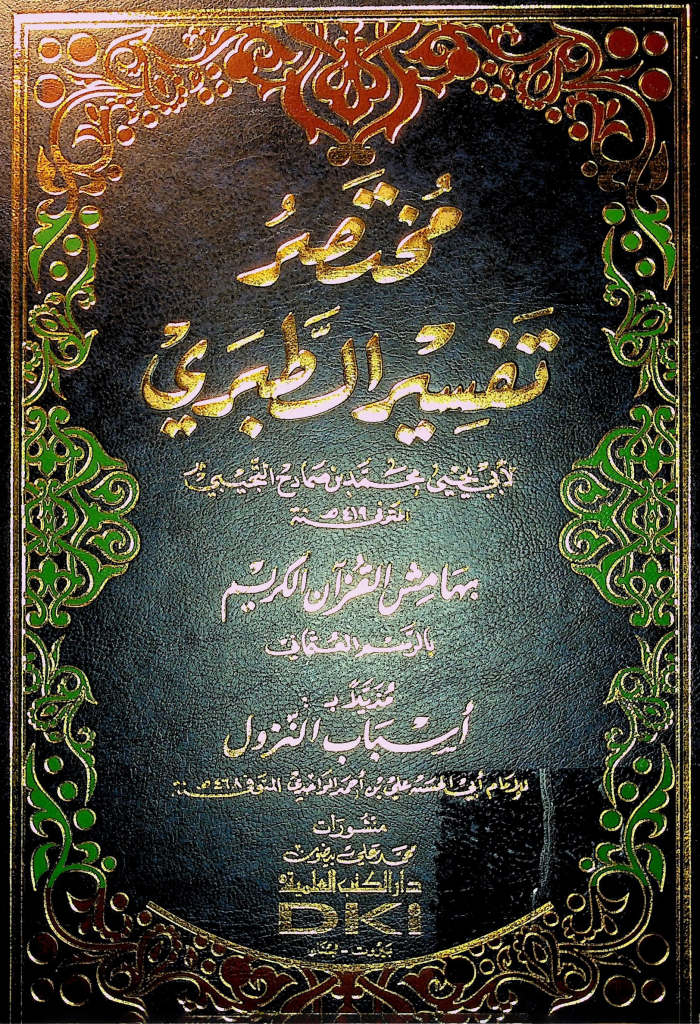 مُختَصَرُ
تَفسِير الطَّبَرِيِّ
لأبي يحيى محمد بن صمادح التجيبي
المتوفى ٤١٩ هـ سنة
بهامش القرآن الكريم
بالرسم العثماني
مُذَيَّلاً بـ
أسباب النزول
للإمام أبي الحسن علي بن أحمد الواحدي المتوفى ٤٦٨ هـ سنة
منشورات
محمد علي بيضون
دار الكتب العلمية
DKi
بيروت - لبنان